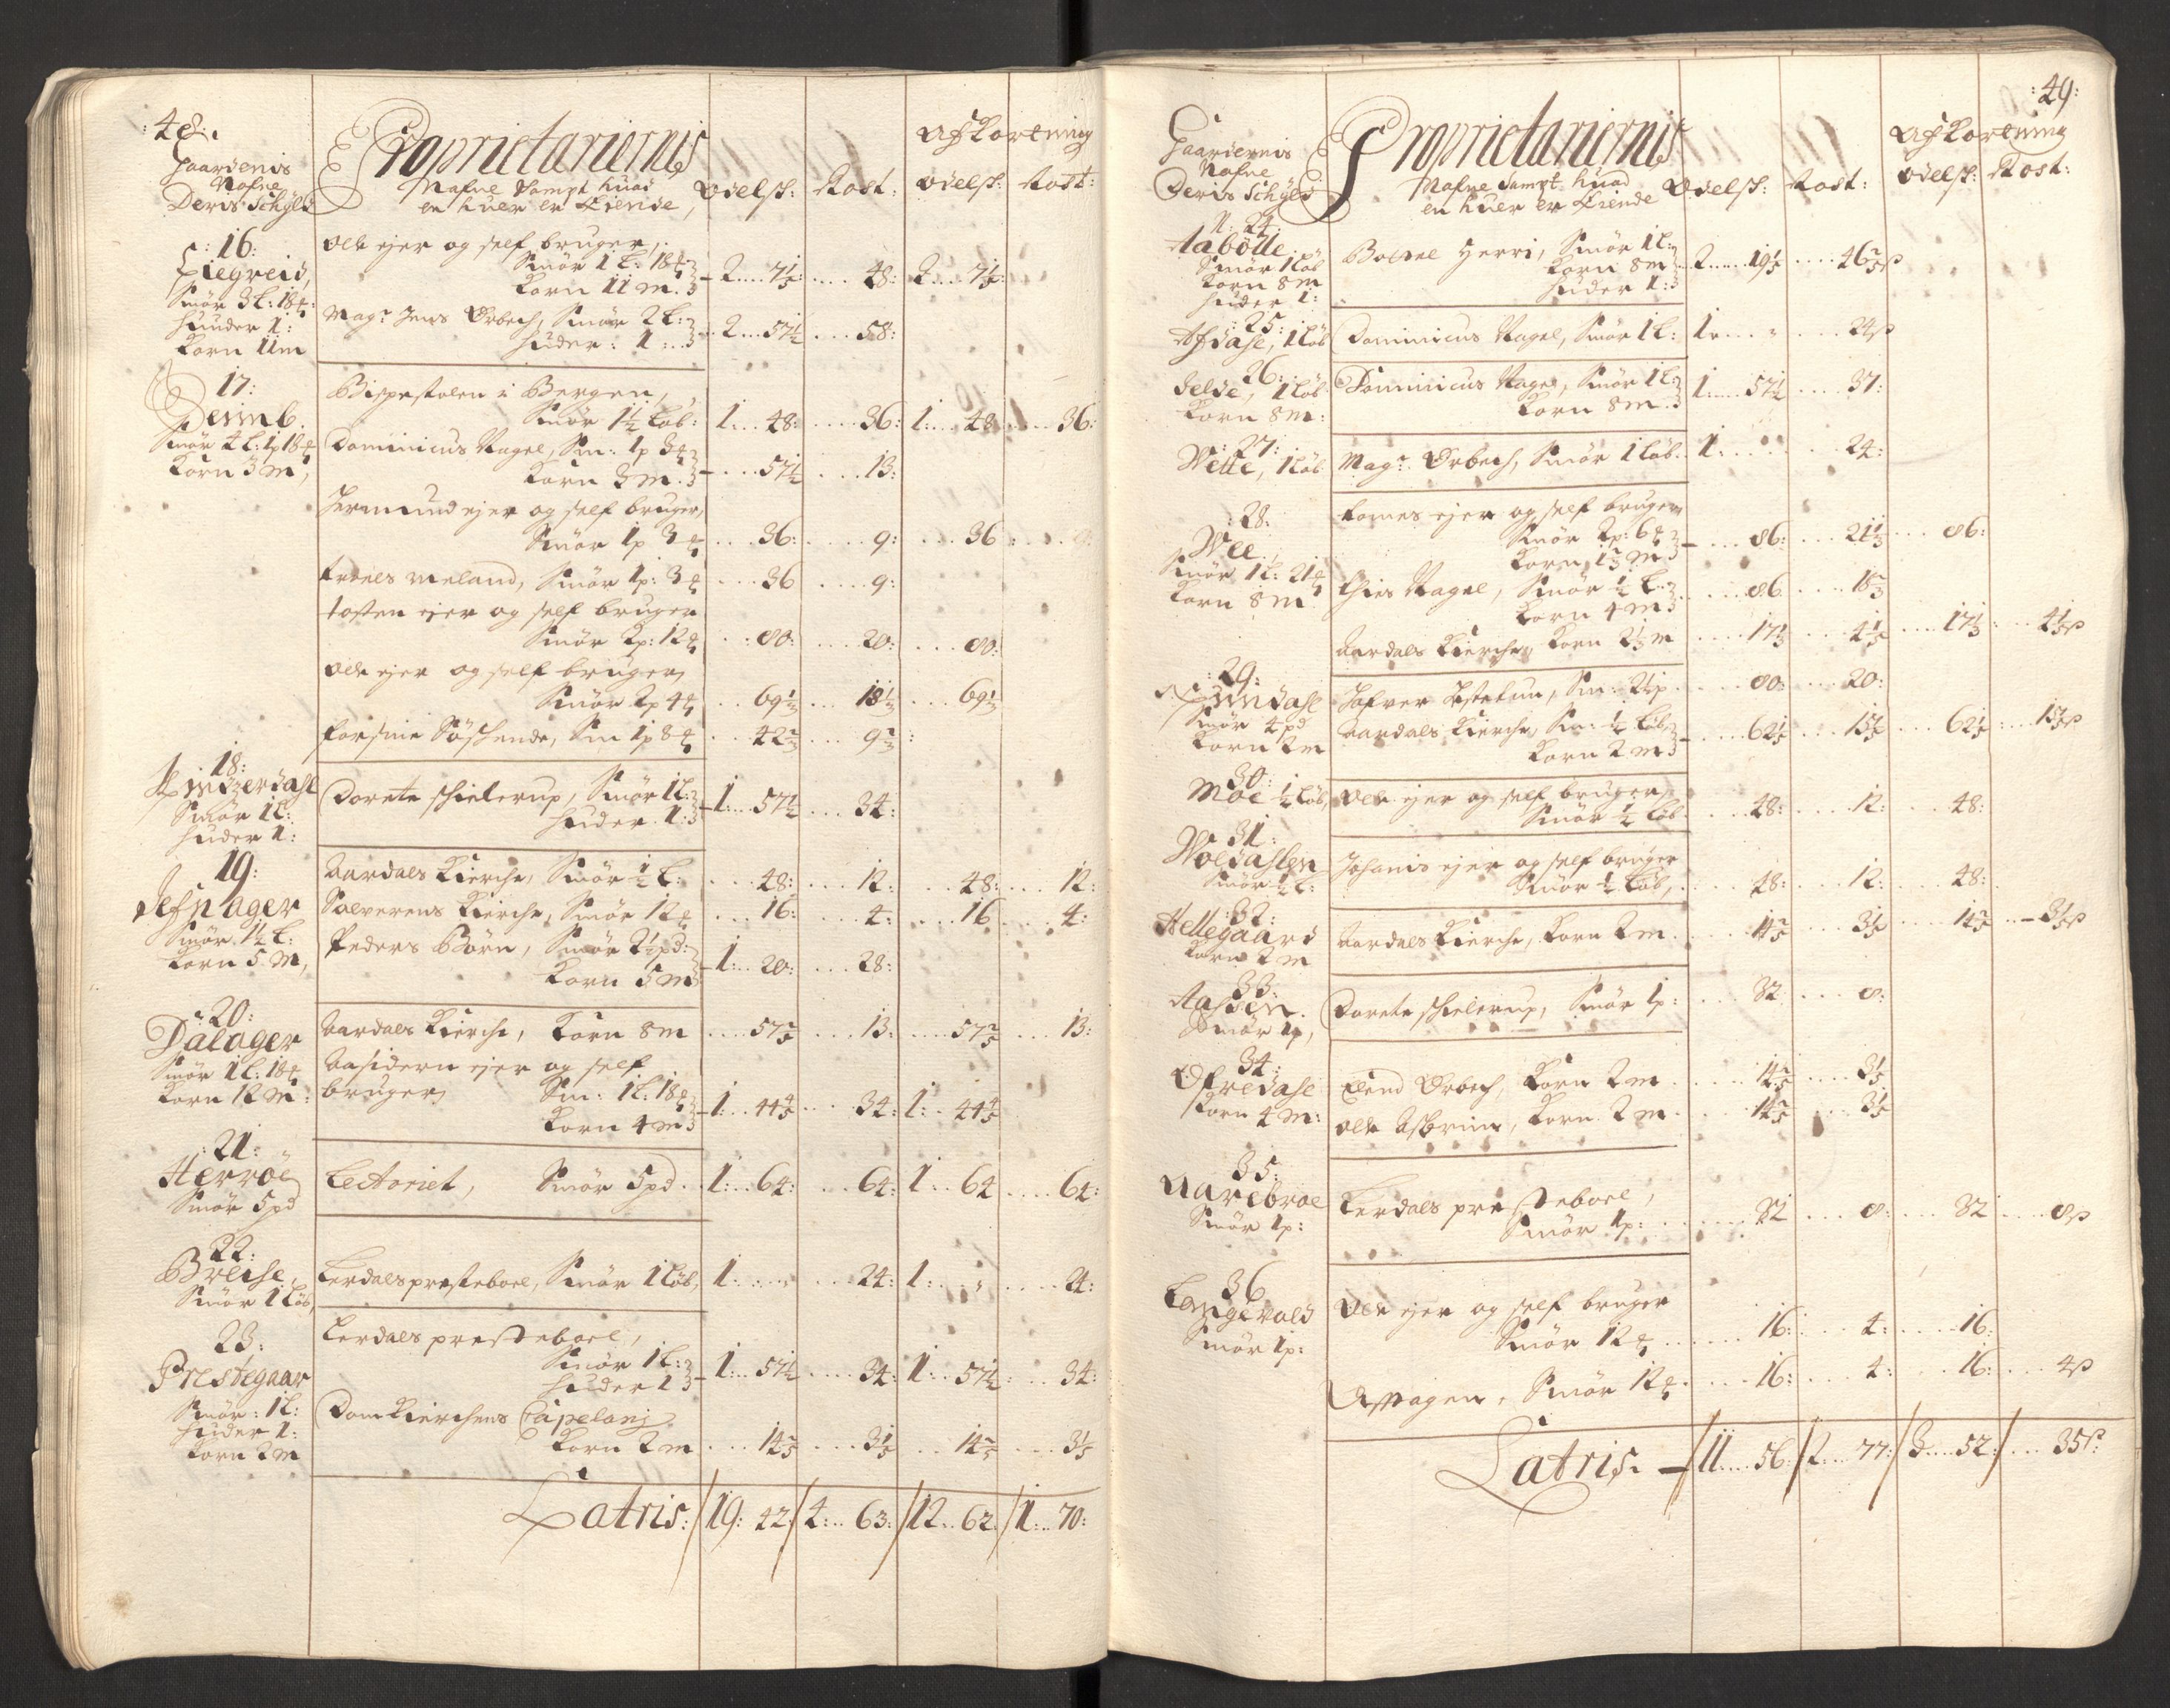 :48:
Gaardenis
Nafne
Deris Schyld
Proprietariernis
Nafne Sampt huad
en huer er Eiende,
Odelsk:
Rost:
Afkortning
Odelsk:
Rost:
:16:
Smør 3 L: 18
Huuder 1:
Korn 11 m
Ole ejer og self bruger,
Smør 1 L: 18
Korn 11 m. 2 .... 7 1/5 .... 48: 2 .... 7 1/5:
Magr Jens Ørbech, Smør 2 L:
Huder: 1: 2 ... 57 1/2 ... 58:
17:
Smør 4 L: 1p 18
Korn 3 m,
Bispestolen i Bergen,
Smør 1 1/2 Løb: 1: ... 48: .... 36: 1: ... 48 .... 36:
Dominicus Nagel, Sm: 1p 3
Korn 3 m. ... 57 1/2 ... 13:
Jermund ejer og self bruger,
Smør 1p 3 ... 36: .... 9: ... 36
Troels Meland, Smør 1p: 3 ... 36 .... 9:
Tosten ejer og self bruger
Smør 2p: 12 ... 80: ... 20: ... 80:
Ole ejer og self bruger,
Smør 2p 4 ... 69 1/3 ... 18 1/3 ... 69 1/3
Forsine Søschende, Sm 1p 8 ... 42 2/3 ... 9 2/3
18:
Smør 1 L:
Huder 1:
Dorete Schielerup, Smør 1 L:
Huder 1: 1: ... 57 1/2 ... 34:
19:
Smør 1 1/2 L:
Korn 5 m,
Aardals Kierche, Smør 1/2 L: ... 48: ... 12: ... 48: ... 12:
Salverens Kierche, Smør 12 ... 16: ... 4: ... 16 ... 4:
Peders Børn, Smør 2 1/2 pd:
Korn 5 m 1: ... 20: ... 28:
:20:
Dalager
Smør 1 L: 18
Korn 12 m:
Aardals Kierche, Korn 8 m .... 57 3/5 ... 13: .... 57 3/5 ... 13:
Aasidern ejer og self
bruger, Sm: 1 L: 18
Korn 4 m 1: ... 44 4/5 ... 34: 1: ... 44 4/5
:21:
Herrøe
Smør 5 pd
Lectoriet, Smør 5 pd. 1: ... 64: ... 64: 1: ... 64 .... 64:
22:
Breche,
Smør 1 Løb,
Lerdals presteboel, Smør 1 Løb, 1: ...... 24: 1: ...... 24:
23:
Prestegaar
Smør: 1 L:
Huder 1:
Korn 2 m
Lerdals presteboel,
Smør 1 L:
Huder 1 1: ... 57 1/2 ... 34: 1: ... 57 1/2: ... 34:
Domkierchens Capelanj,
Korn 2 m ... 14 2/5 ... 3 1/5 ... 14 2/5 ... 3 1/5
Latris: 19: 42: 4: ... 63: 12 .. 62: 1: ... 70:
:49:
Gaardernis
Nafne
Deris Schyld
Proprietariernis
Nafne Sampt huad
en huer er Eiende
Odelsk:
Rost:
Afkortning
Odelsk:
Rost:
N: 24:
Aabølle
Smør 1 Løb
Korn 8 m
Huder 1:
Herri, Smør 1 L:
Korn 8 m
Huder 1: 2 ..... 19 1/5 .... 46 2/5 s
:25:
Afdahl, 1 Løb
Dominicus Nagel, Smør 1 L: 1 ...... 24 s
26:
Selde, 1 Løb
Korn 8 m:
Dominicus Nagel, Smør 1 L:
Korn 8 m. 1 .... 57 1/2 .... 37:
:27:
Vette, 1 Løb
Magr. Ørbech, Smør 1 Løb. 1: ...... 24:
:28:
Wee,
Smør 1 L: 21
Korn 8 m
Tomes ejer og self bruger,
Smør 2p: 6
Korn 1 2/3 m ... 86: ... 21 1/3 ... 86:
Thies Nagel, Smør 1/2 L:
Korn 4 m ... 86 ... 18 2/3
Aardals Kierche, Korn 2 1/3 m .... 17 1/3 ... 4 1/5 .... 17 1/3 ... 4 1/5 s
:29:
Smør 4 pd
Korn 2 m
Sm: 2 1/2 p ... 80: ... 20:
Aardals Kierche, Sm: 1/2 Løb
Korn 2 m ... 62 2/5 ... 15 1/5 ... 62 2/5 ... 15 1/5 s
30:
Moe 1/2 Løb,
Ole ejer og self bruger,
Smør 1/2 Løb. ... 48: ... 12: ... 48:
31:
Smør 1/2 L:
Johanis ejer og self bruger
Smør 1/2 Løb, ... 48: ... 12: ... 48:
:32:
Hellegaard
Korn 2 m
Aardals Kierche, Korn 2 m. ... 14 2/5 ... 3 1/5 ... 14 2/5 ... 3 1/5 s
:33:
Aasren.
Smør 1p,
Dorete Schielerup, Smør 1p: ... 32 ... 8:
34:
Ofredahl
Korn 4 m:
Eend Ørbech, Korn 2 m ..... 14 2/5 .... 3 1/5
Ole Asbrim, Korn 2 m ..... 14 2/5 ... 3 1/5
35:
Aarebroe
Smør 1p:
Lerdals presteboel,
Smør 1p: ..... 32 ... 8: ... 32 .... 8 s
36
Langevald
Smør 1p:
Ole ejer og self bruger
Smør 12 ..... 16: ... 4: .... 16:
Smør 12. ... 16: ... 4: ... 16: ... 4 s
Latris. 11 .... 56: 2 ... 77: 3 ... 52: ... 35 s: